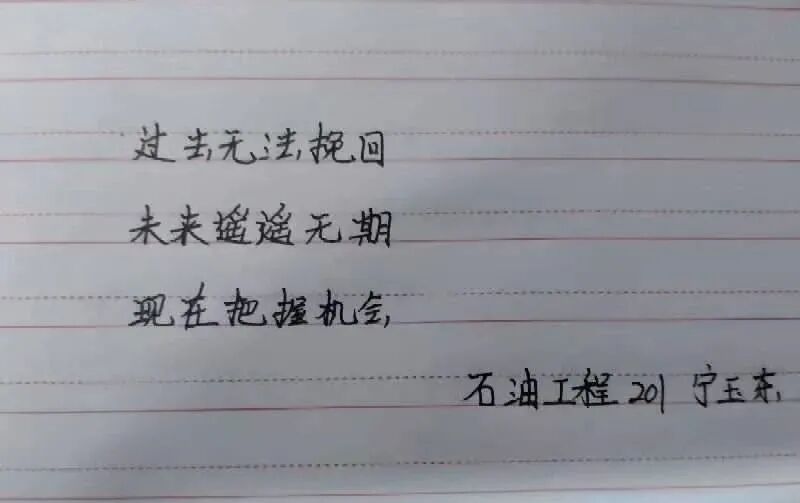 过去无法挽回
未来遥遥无期
现在把握机会
石油工程201 宁玉东